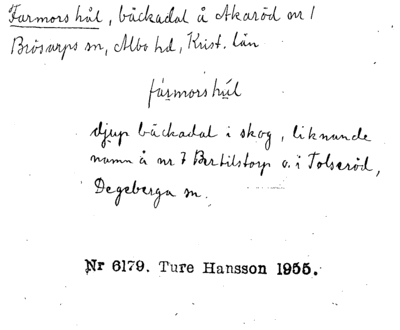 Farmors hål, bäckadal å Akaröd nr 1
Brösarps sn, Albo hd, Krist. län
fármorshúl
djup bäckadal i skog, liknande
namn å nr 7 Bertilstorp o. i Tolseröd,
Degeberga sn.
Nr 6179. Ture Hansson 1955.